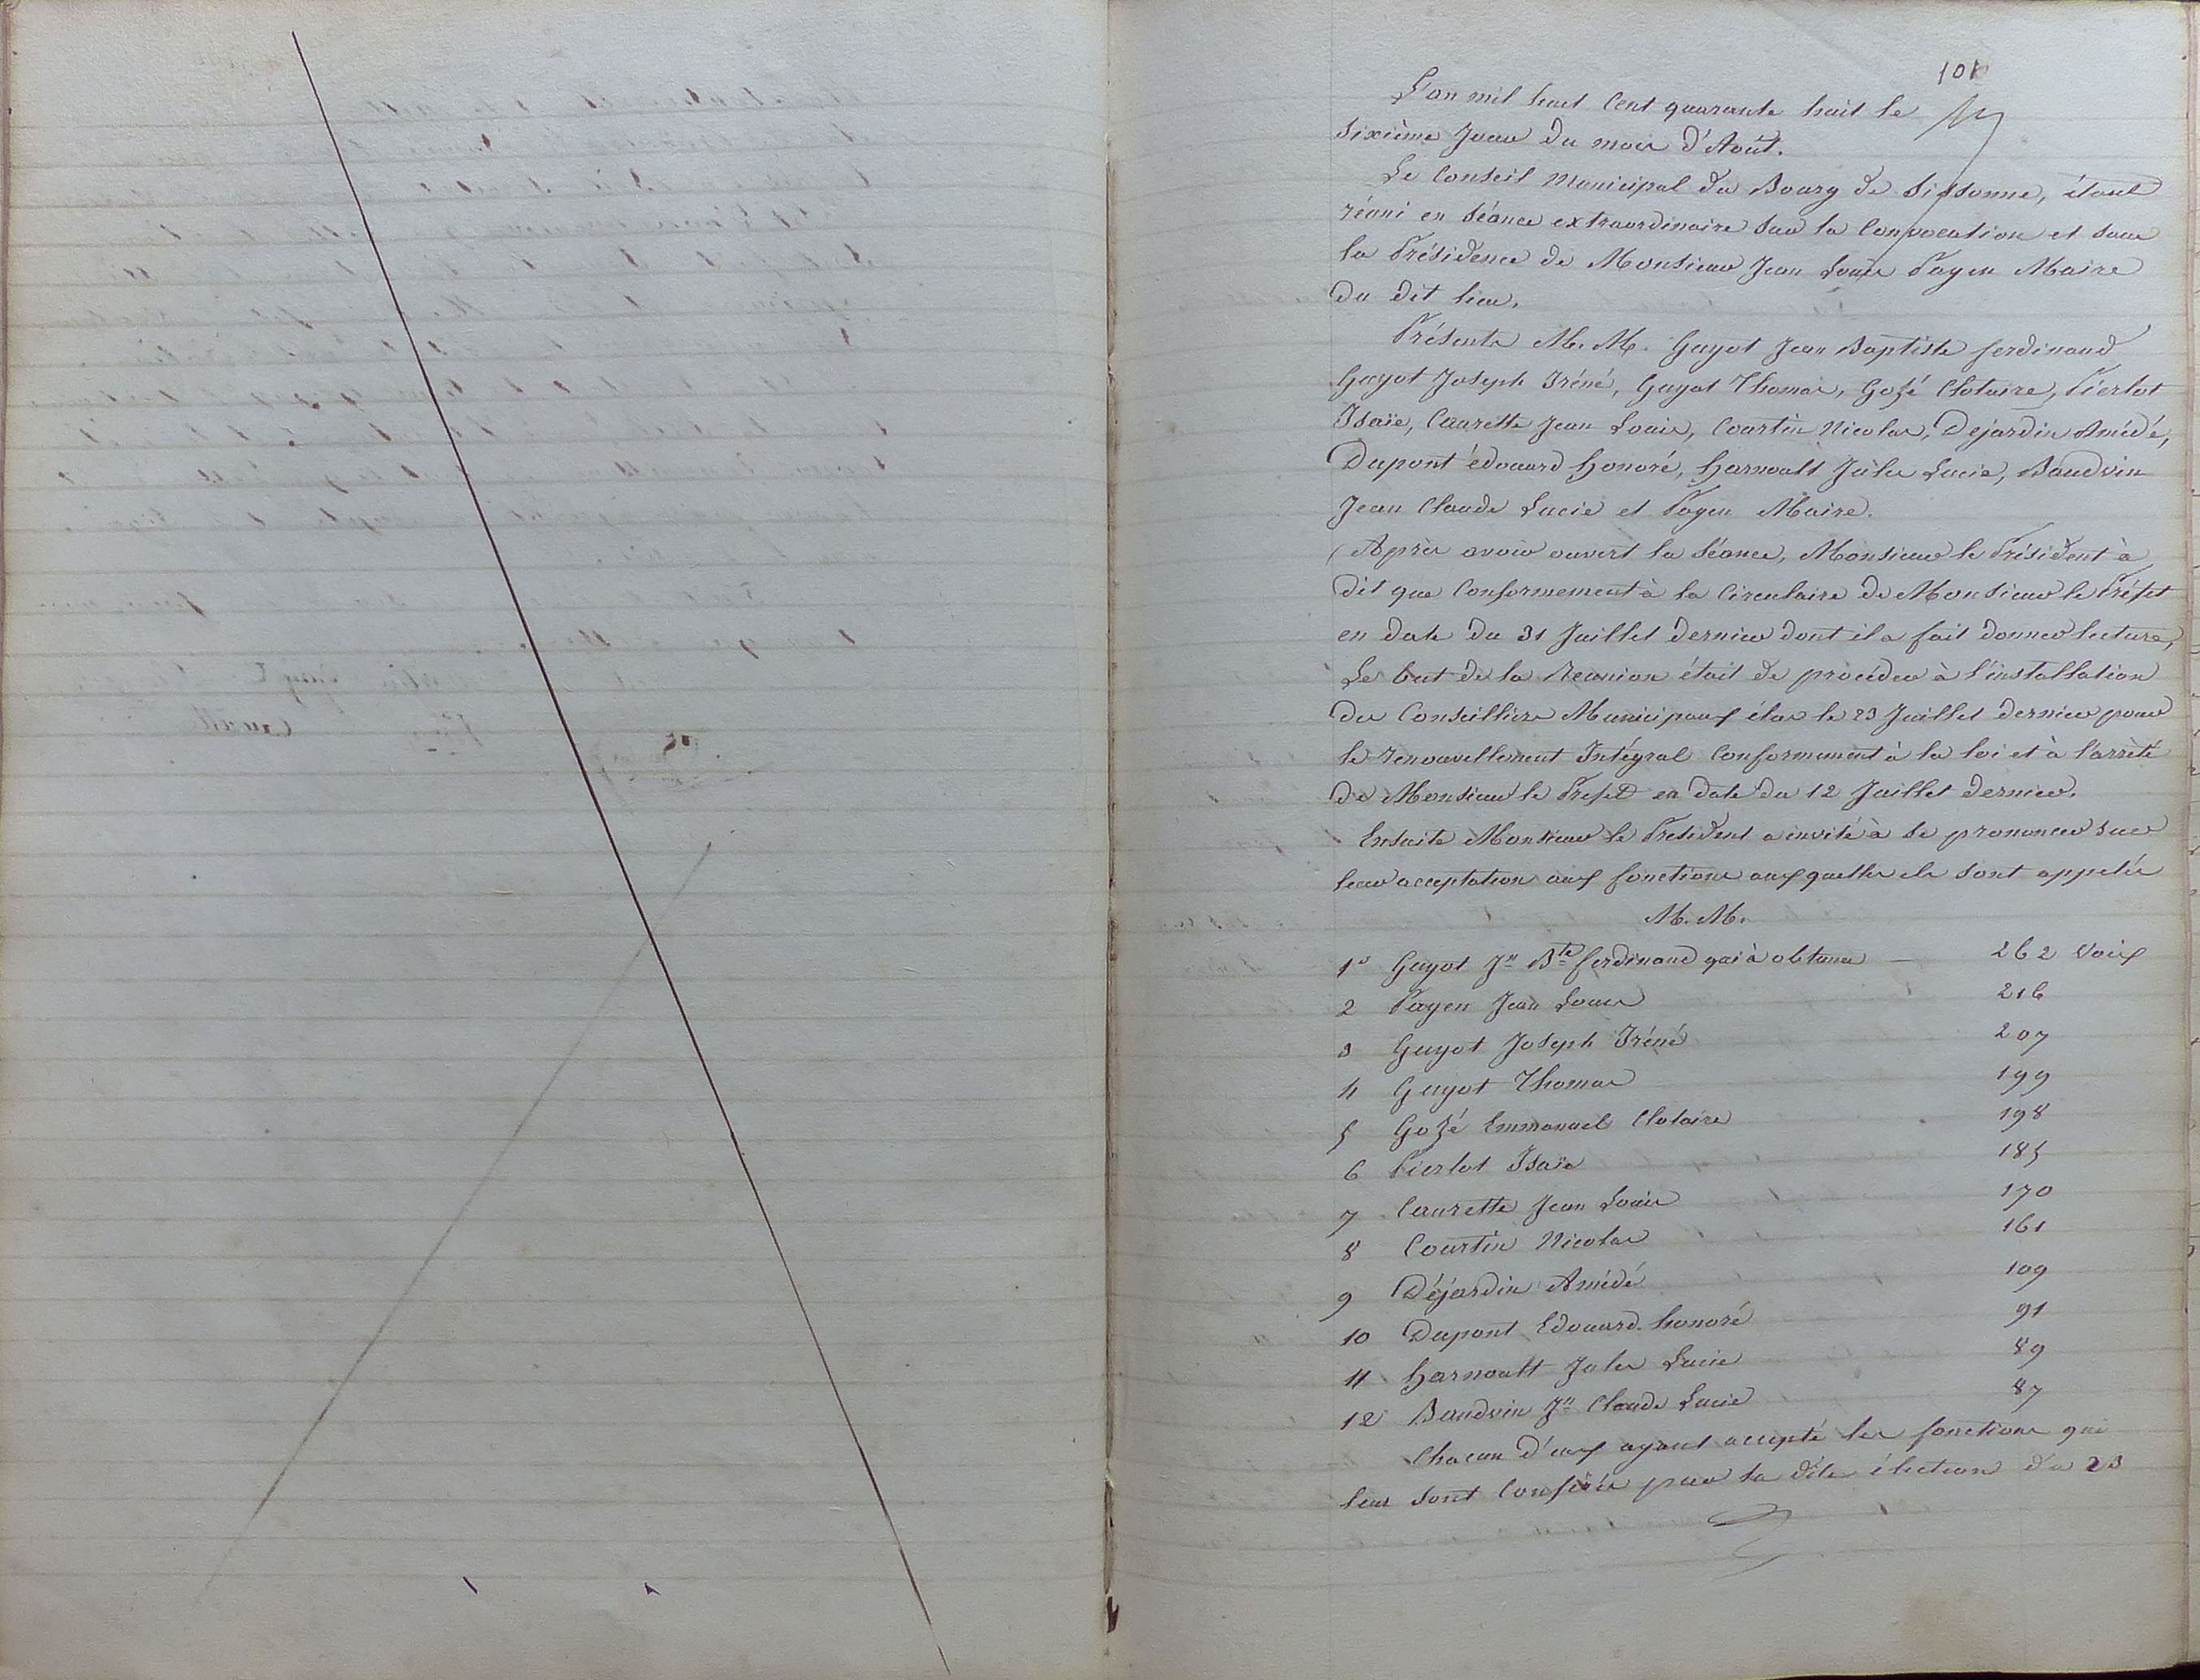 101
L'an mil huit Cent quarante huit le
Sixième Jour du mois d'Août.
Le Conseil Municipal du Bourg de Sissonne, étant
réuni en Séance extraordinaire sur la Convocation et sous
la Présidence de Monsieur Jean Louis Payen Maire
du dit lieu.
Présents M. M. Guyot Jean Baptiste ferdinand
Guyot Joseph Iréné, Guyot Thomas, Gozé Clotaire, Pierlot
Isaïe, Caurette Jean Louis, Courtin Nicolas, Dejardin Amédé,
Dupont édouard honoré, harnoult Jules Lucie, Baudvin
Jean Claude Lucie et Payen Maire.
Après avoir ouvert la Séance, Monsieur le Président à
dit que Conformement à la Circulaire de Monsieur le Préfet
en date du 31 Juillet dernier dont il a fait donner lecture,
Le but de la Reunion était de procéder à l'installation
des Conseilliers Municipaux élus le 23 Juillet dernier pour
le renouvellement Intégral Conformement à la loi et à l'arrêté
de Monsieur le Prefet en date du 12 Juillet dernier.
Ensuite Monsieur le President a invité à se prononcer sur
leur acceptation aux fonctions auxquelles ils sont appelés
M. M.
1° Guyot Jn Bte ferdinand qui à obtenu — 262 Voix
2 Payen Jean Louis 216
3 Guyot Joseph Iréné 207
4 Guyot Thomas 199
5 Gozé Emmanuel Clotaire 198
6 Pierlot Isaïe 185
7 Caurette Jean Louis 170
8 Courtin Nicolas 161
9 Déjardin Amédé 109
10 Dupont Edouard honoré 91
11 harnoult Jules Lucie 89
12 Baudvin Jn Claude Lucie 87
Chacun d'eux ayant accepté les fonctions qui
leur sont Conférés par la dite élection du 23